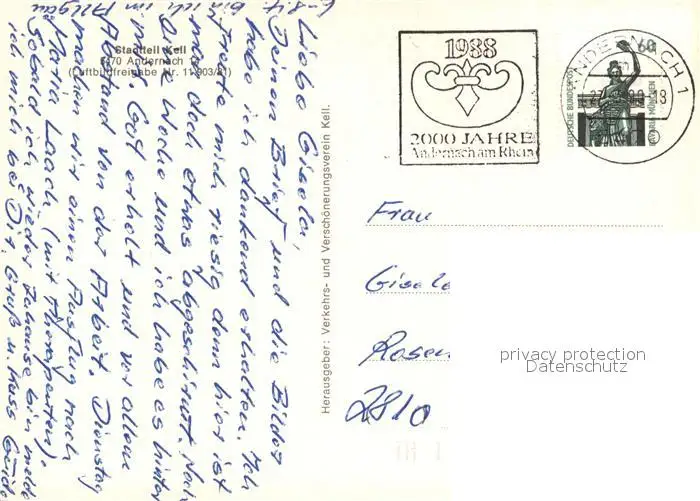 6-8.4. bin ich im
Allgäu
Liebe Gisela,
Deinen Brief und die Bilder
habe ich dankend erhalten. Ich
freute mich riesig denn hier ist
man doch etwas abgeschirmt. Noch
eine Woche und ich habe es hinter
mir. Gut erholt und vor allem
Abstand von der Arbeit. Dienstag
machen wir einen Ausflug nach
Maria Laach (mit Therapeuten).
Sobald ich wieder zuhause bin melde
ich mich bei Dir. Gruß u. Kuss
Stadtteil Kell
5470 Andernach 12
(Luftbildfreigabe Nr. 11903/81)
Herausgeber: Verkehrs- und Verschönerungsverein Kell.
1988
2000 JAHRE
Andernach am Rhein
ANDERNACH 1
DEUTSCHE BUNDESPOST
60
BAVARIA MÜNCHEN
Frau
Gisela
Rosen
2810
privacy protection
Datenschutz